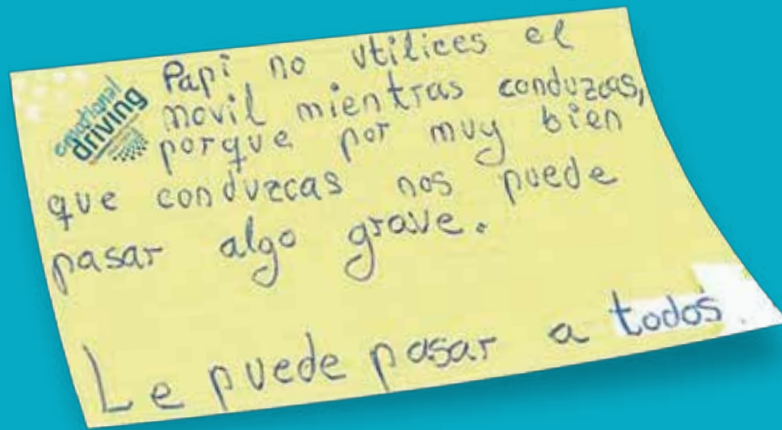 emotional
driving
Papi no utilices el
movil mientras conduzcas,
porque por muy bien
que conduzcas nos puede
pasar algo grave.
Le puede pasar a todos.